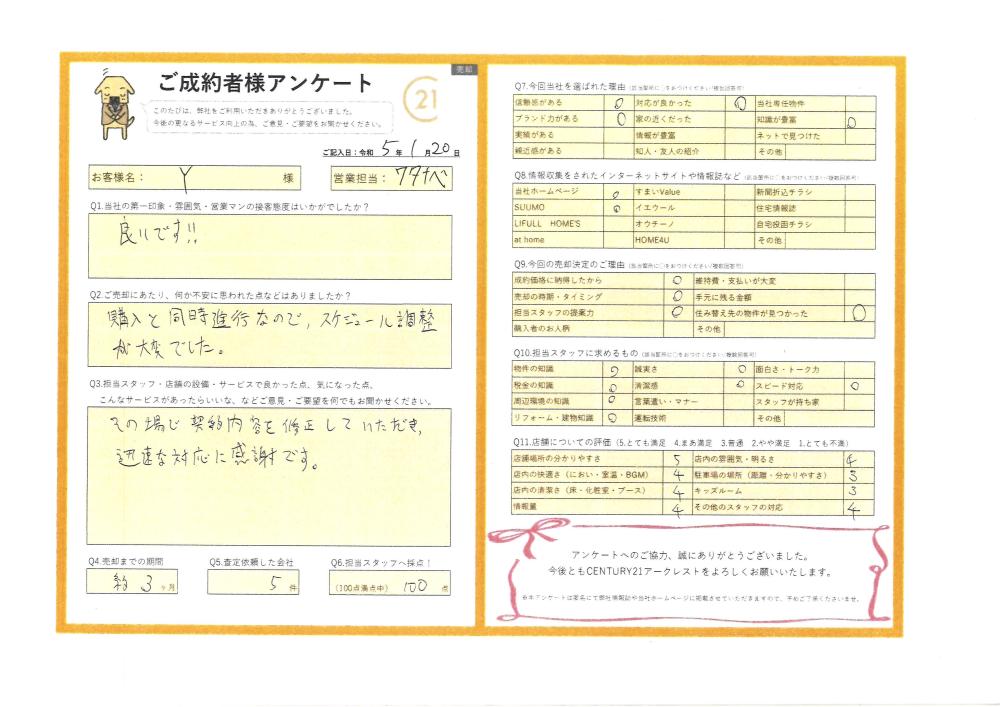 売却
ご成約者様アンケート
21
このたびは、弊社をご利用いただきありがとうございました。
今後の更なるサービス向上の為、ご意見・ご要望をお聞かせください。
ご記入日：令和 5 年 1 月 20 日
お客様名： Y 様
営業担当： ワタナベ
Q1.当社の第一印象・雰囲気・営業マンの接客態度はいかがでしたか？
良いです!!
Q2.ご売却にあたり、何か不安に思われた点などはありましたか？
購入と同時進行なので、スケジュール調整
が大変でした。
Q3.担当スタッフ・店舗の設備・サービスで良かった点、気になった点、
こんなサービスがあったらいいな、などご意見・ご要望を何でもお聞かせください。
その場で契約内容を修正していただき、
迅速な対応に感謝です。
Q4.売却までの期間
約 3 ヶ月
Q5.査定依頼した会社
5 件
Q6.担当スタッフへ採点！
(100点満点中) 100 点
Q7.今回当社を選ばれた理由 (該当箇所に○をおつけください/複数回答可)
信頼感がある ○ 対応が良かった ○ 当社専任物件
ブランド力がある ○ 家の近くだった 知識が豊富 ○
実績がある 情報が豊富 ネットで見つけた
親近感がある 知人・友人の紹介 その他
Q8.情報収集をされたインターネットサイトや情報誌など (該当箇所に○をおつけください/複数回答可)
当社ホームページ ○ すまいValue 新聞折込チラシ
SUUMO ○ イエウール 住宅情報誌
LIFULL HOME'S オウチーノ 自宅投函チラシ
at home HOME4U その他
Q9.今回の売却決定のご理由 (該当箇所に○をおつけください/複数回答可)
成約価格に納得したから ○ 維持費・支払いが大変
売却の時期・タイミング ○ 手元に残る金額
担当スタッフの提案力 ○ 住み替え先の物件が見つかった ○
購入者のお人柄 その他
Q10.担当スタッフに求めるもの (該当箇所に○をおつけください/複数回答可)
物件の知識 ○ 誠実さ ○ 面白さ・トーク力
税金の知識 ○ 清潔感 ○ スピード対応 ○
周辺環境の知識 ○ 言葉遣い・マナー スタッフが持ち家
リフォーム・建物知識 ○ 運転技術 その他
Q11.店舗についての評価（5.とても満足 4.まあ満足 3.普通 2.やや満足 1.とても不満）
店舗場所の分かりやすさ 5 店内の雰囲気・明るさ 4
店内の快適さ（におい・室温・BGM） 4 駐車場の場所（距離・分かりやすさ） 3
店内の清潔さ（床・化粧室・ブース） 4 キッズルーム 3
情報量 4 その他のスタッフの対応 4
アンケートへのご協力、誠にありがとうございました。
今後ともCENTURY21アークレストをよろしくお願いいたします。
※本アンケートは匿名にて弊社情報誌や当社ホームページに掲載させていただきますので、予めご了承くださいませ。